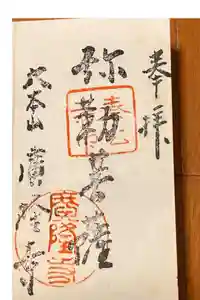 奉拝
弥勒菩薩
大本山 廣隆寺
廣隆寺